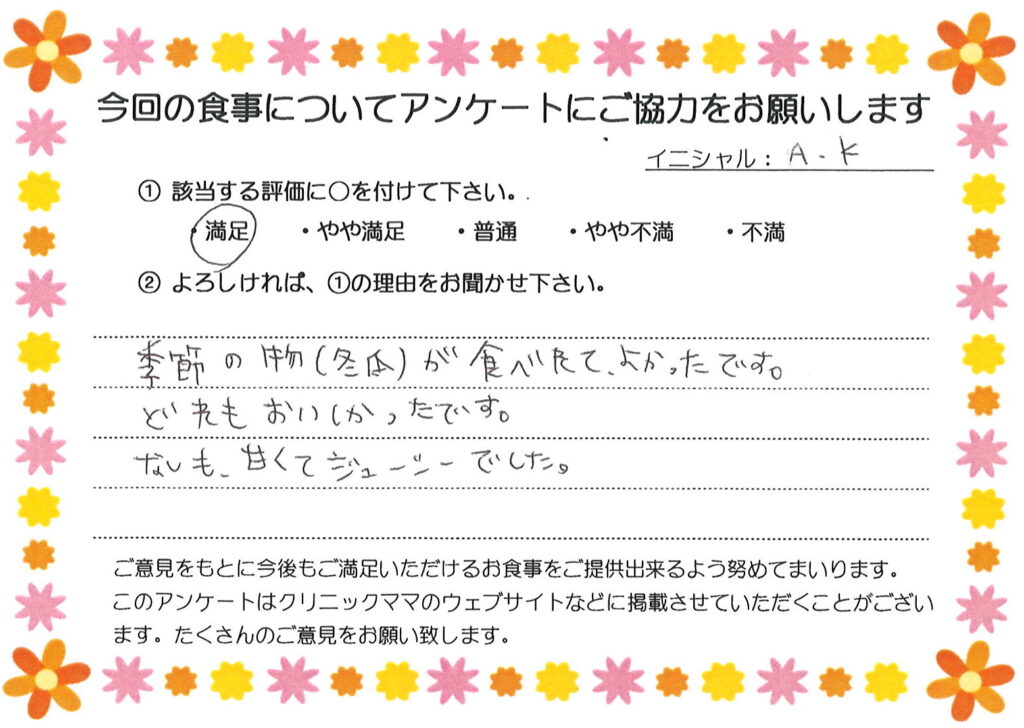 今回の食事についてアンケートにご協力をお願いします
イニシャル：A.K
① 該当する評価に○を付けて下さい。
・満足 ・やや満足 ・普通 ・やや不満 ・不満
② よろしければ、①の理由をお聞かせ下さい。
季節の物(冬瓜)が食べれて、よかったです。
どれもおいしかったです。
なしも、甘くてジューシーでした。
ご意見をもとに今後もご満足いただけるお食事をご提供出来るよう努めてまいります。
このアンケートはクリニックママのウェブサイトなどに掲載させていただくことがござい
ます。たくさんのご意見をお願い致します。